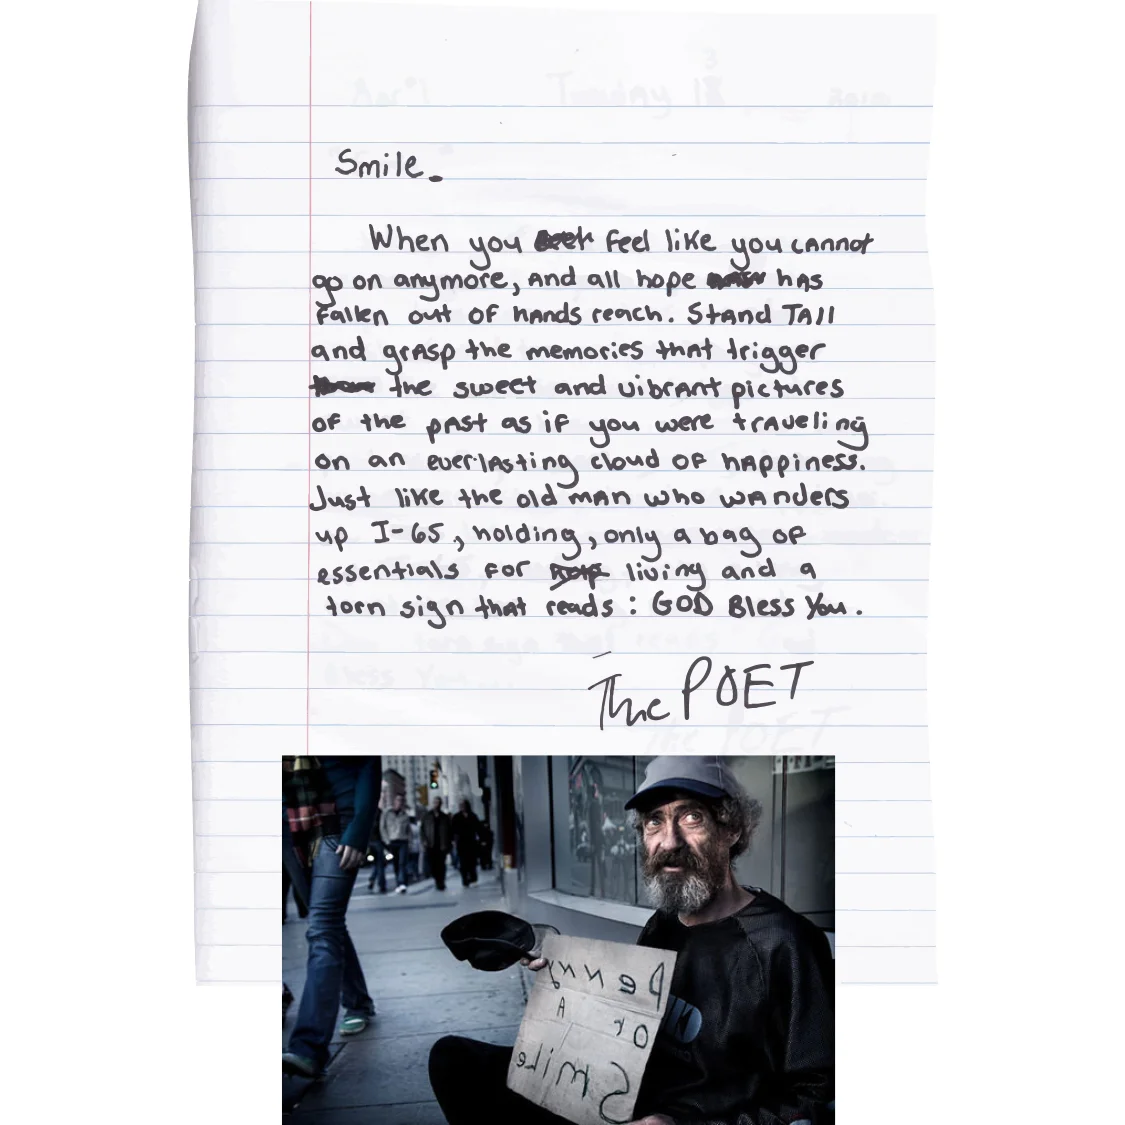 Smile.
When you feel like you cannot
go on anymore, and all hope has
fallen out of hands reach. Stand Tall
and grasp the memories that trigger
the sweet and vibrant pictures
of the past as if you were traveling
on an everlasting cloud of happiness.
Just like the old man who wanders
up I-65, holding, only a bag of
essentials for living and a
torn sign that reads: GOD Bless You.
The POET
Penny
or A
Smile